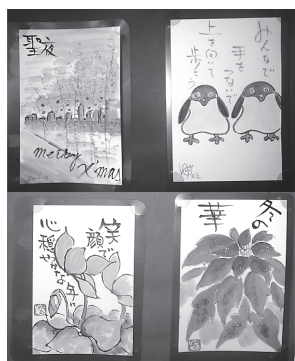 聖夜
merry
X'mas
みんなで
手を
つないで
上を向いて
歩こう
笑顔で
心穏やかな年に
冬の
華